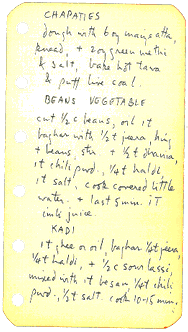 CHAPATIES
dough with 60g maize atta,
knead, + 20g green methi
& salt, bake hot tava
& puff live coal.
BEANS VEGETABLE
cut 1/2 c beans, oil 1t
baghar with 1/2 t jeera, hing
+ beans, stir + 1/2 t dhania,
1t chili powd., 1/4t haldi,
1t salt. cook covered little
water. + last 5 min. 1T
imli juice.
KADI
1t ghee or oil, baghar 1/2t jeera,
1/4t haldi, + 1/2 c sour lassi,
mixed with 1t besan, 1/4t chili
powd., 1/2t salt. cook 10-15 min.